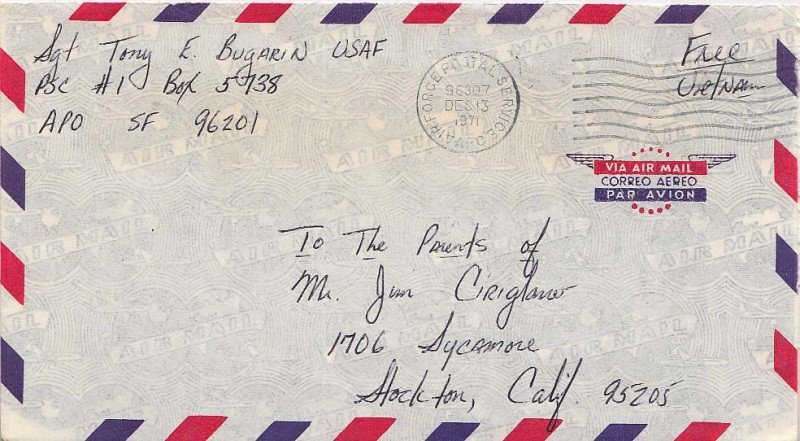 Sgt Tony E. Bugarin USAF
PSC #1 Box 5738
APO SF 96201
AIR FORCE POSTAL SERVICE
96307
DEC 13
1971
Free
Vietnam
VIA AIR MAIL
CORREO AEREO
PAR AVION
To The Parents of
Mr. Jim Cirigliano
1706 Sycamore
Stockton, Calif. 95205